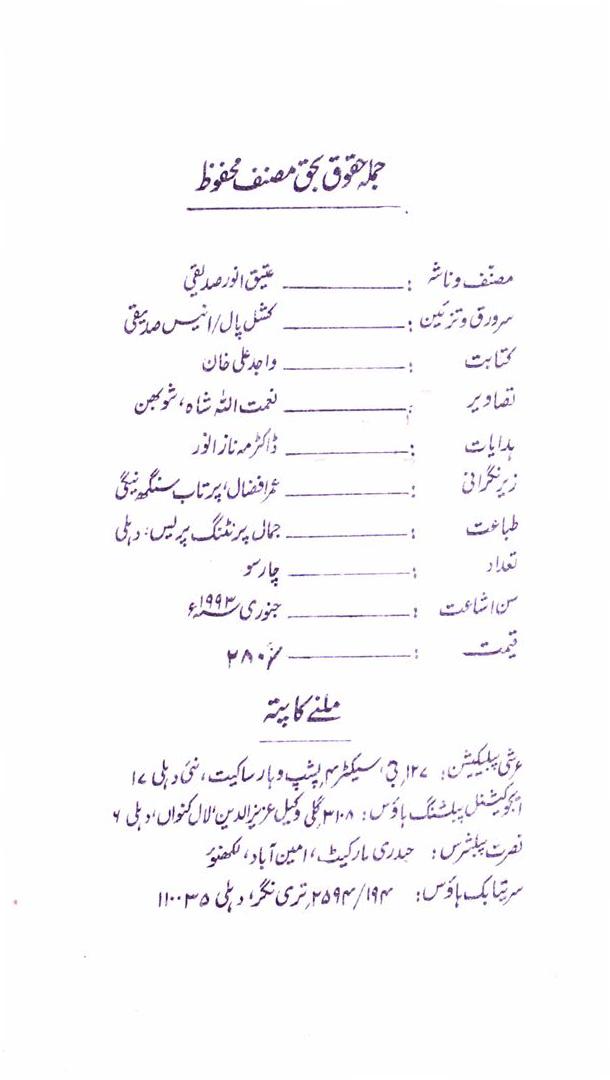 جملہ حقوق بحق مصنف محفوظ
مصنّف و ناشر : عتیق انور صدیقی
سرورق و تزئین : کشل پال/انیس صدیقی
کتابت : واجد علی خان
تصاویر : نعمت اللہ شاہ، شوبھن
ہدایات : ڈاکٹر مہ ناز انور
زیر نگرانی : عمر افضال، پرتاب سنگھ نیگی
طباعت : جمال پرنٹنگ پریس، دہلی
تعداد : چار سو
سن اشاعت : جنوری ۱۹۹۳ء
قیمت : ۲۸۰/
ملنے کا پتہ
عرشی پبلیکیشن: ۱۲۷، جی، سیکٹر ۴، پشپ وہار ساکیت، نئی دہلی ۱۷
ایجوکیشنل پبلشنگ ہاؤس: ۳۱۰۸، گلی وکیل عزیز الدین، لال کنواں، دہلی ۶
نصرت پبلشرس: حیدری مارکیٹ، امین آباد، لکھنؤ
سریتا بک ہاؤس: ۲۵۹۴/۱۹۴، تری نگر، دہلی ۱۱۰۰۳۵